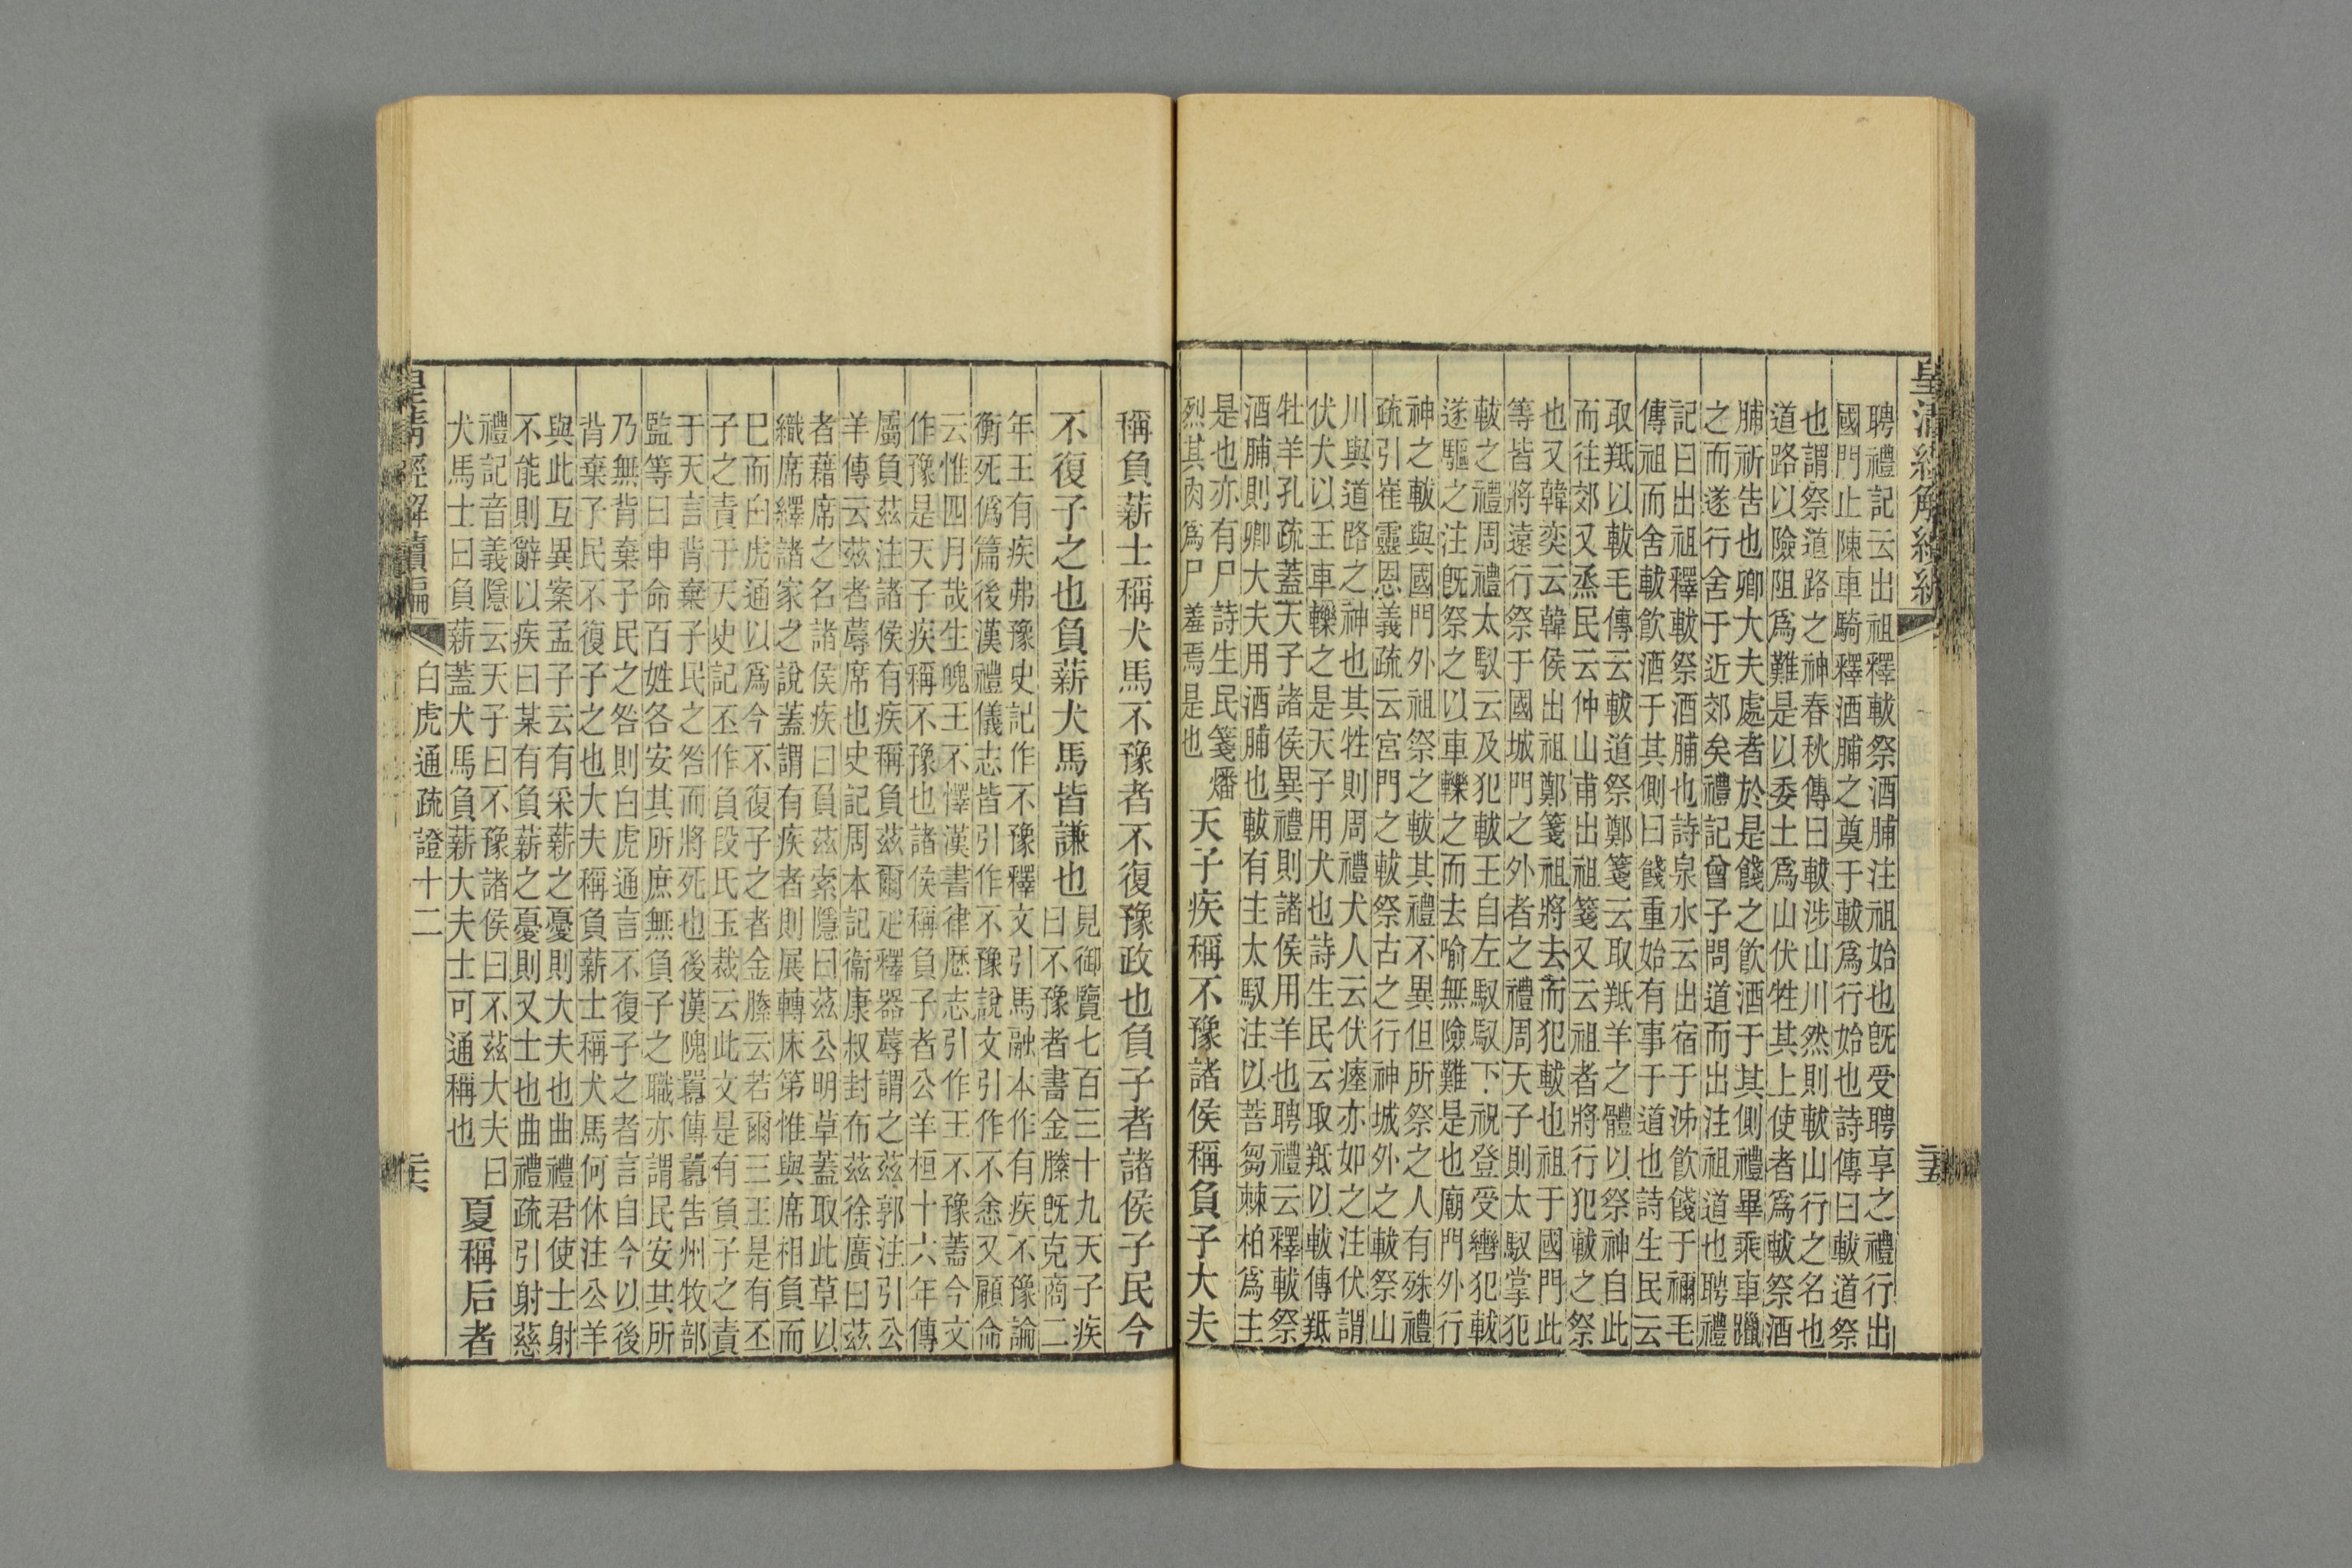 皇清經解續編
二十五
聘禮記云出祖釋軷祭酒脯注祖始也旣受聘享之禮行出
國門止陳車騎釋酒脯之奠于軷爲行始也詩傳曰軷道祭
也謂祭道路之神春秋傳曰軷涉山川然則軷山行之名也
道路以險阻爲難是以委土爲山伏牲其上使者爲軷祭酒
脯祈告也卿大夫處者於是餞之飮酒于其側禮畢乘車躐
之而遂行舍于近郊矣禮記曾子問道而出注祖道也聘禮
記曰出祖釋軷祭酒脯也詩泉水云出宿于泲飮餞于禰毛
傳祖而舍軷飮酒于其側曰餞重始有事于道也詩生民云
取羝以軷毛傳云軷道祭鄭箋云取羝羊之體以祭神自此
而往郊又烝民云仲山甫出祖箋又云祖者將行犯軷之祭
也又韓奕云韓侯出祖鄭箋祖將去而犯軷也祖于國門此
等皆將遠行祭于國城門之外者之禮周天子則太馭掌犯
軷之禮周禮太馭云及犯軷王自左馭馭下祝登受轡犯軷
遂驅之注旣祭之以車轢之而去喻無險難是也廟門外行
神之軷與國門外祖祭之軷其禮不異但所祭之人有殊禮
疏引崔靈恩義疏云宮門之軷祭古之行神城外之軷祭山
川與道路之神也其牲則周禮犬人云伏瘞亦如之注伏謂
伏犬以王車轢之是天子用犬也詩生民云取羝以軷傳羝
牡羊孔疏蓋天子諸侯異禮則諸侯用羊也聘禮云釋軷祭
酒脯則卿大夫用酒脯也軷有主太馭注以菩芻棘柏爲主
是也亦有尸詩生民箋燔
烈其肉爲尸羞焉是也
天子疾稱不豫諸侯稱負子大夫
稱負薪士稱犬馬不豫者不復豫政也負子者諸侯子民今
不復子之也負薪犬馬皆謙也
見御覽七百三十九天子疾
曰不豫者書金縢旣克商二
年王有疾弗豫史記作不豫釋文引馬融本作有疾不豫論
衡死僞篇後漢禮儀志皆引作不豫說文引作不悆又顧命
云惟四月哉生魄王不懌漢書律歷志引作王不豫蓋今文
作豫是天子疾稱不豫也諸侯稱負子者公羊桓十六年傳
屬負茲注諸侯有疾稱負茲爾疋釋器蓐謂之茲郭注引公
羊傳云茲者蓐席也史記周本記衞康叔封布茲徐廣曰茲
者藉席之名諸侯疾曰負茲索隱曰茲公明草蓋取此草以
織席繹諸家之說蓋謂有疾者則展轉床第惟與席相負而
巳而白虎通以爲今不復子之者金縢云若爾三王是有丕
子之責于天史記丕作負段氏玉裁云此文是有負子之責
于天言背棄子民之咎而將死也後漢隗囂傳囂告州牧部
監等曰申命百姓各安其所庶無負子之職亦謂民安其所
乃無背棄子民之咎則白虎通言不復子之者言自今以後
背棄子民不復子之也大夫稱負薪士稱犬馬何休注公羊
與此互異案孟子云有采薪之憂則大夫也曲禮君使士射
不能則辭以疾曰某有負薪之憂則又士也曲禮疏引射慈
禮記音義隱云天子曰不豫諸侯曰不茲大夫曰
犬馬士曰負薪蓋犬馬負薪大夫士可通稱也
夏稱后者
皇清經解續編
白虎通疏證十二
二十六